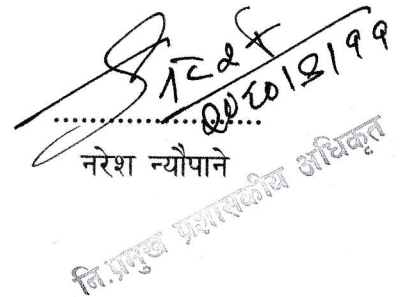 २०८०/३/११
...................
नरेश न्यौपाने
नि.प्रमुख प्रशासकीय अधिकृत